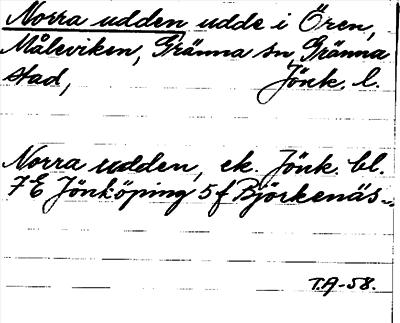 Norra udden udde i Ören,
Måleviken, Gränna sn Gränna
stad, Jönk. l.
Norra udden, ek. Jönk. bl.
7E Jönköping 5f Björkenäs
T.A-58.